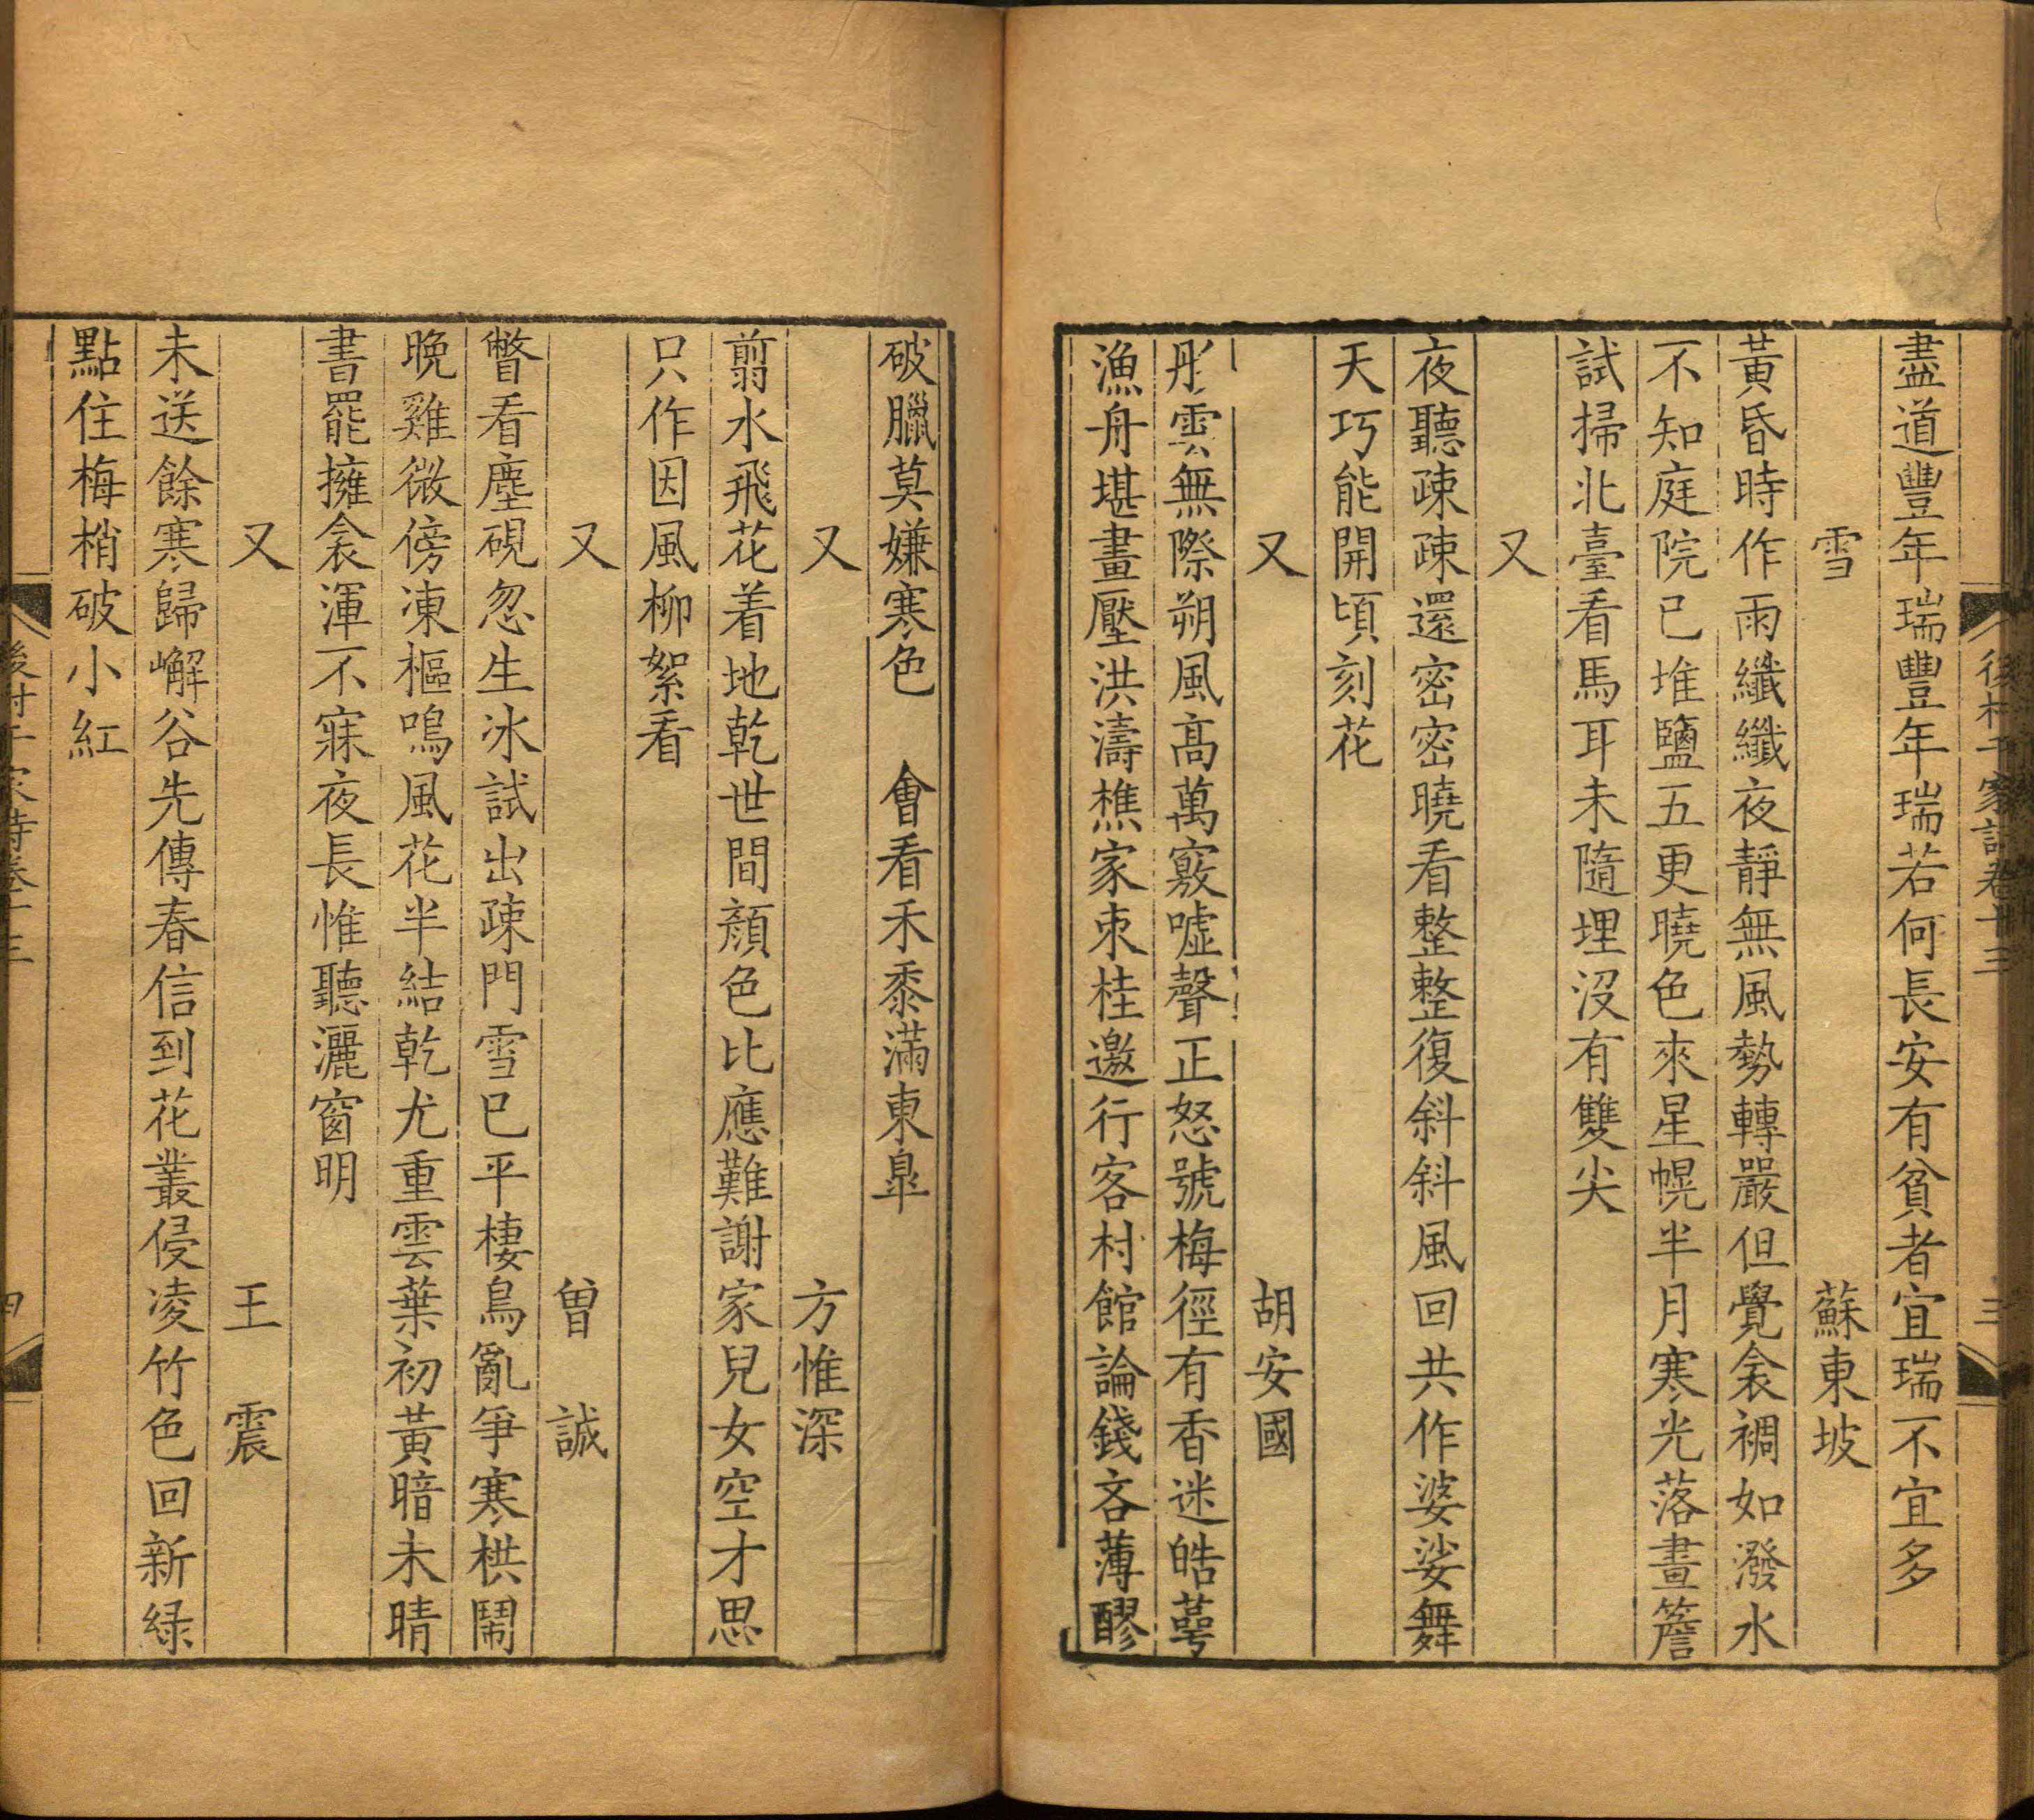 後村千家詩卷十三
三
盡道豐年瑞豐年瑞若何長安有貧者宜瑞不宜多
雪　蘇東坡
黃昏時作雨纖纖夜靜無風勢轉嚴但覺衾裯如潑水
不知庭院已堆鹽五更曉色來星幌半月寒光落畫簷
試掃北臺看馬耳未隨埋沒有雙尖
又
夜聽疎疎還密密曉看整整復斜斜風回共作婆娑舞
天巧能開頃刻花
又　胡安國
彤雲無際朔風高萬竅噓聲正怒號梅徑有香迷皓萼
漁舟堪畫壓洪濤樵家束桂邀行客村館論錢吝薄醪
破臘莫嫌寒色　會看禾黍滿東臯
又　方惟深
翦水飛花着地乾世間顏色比應難謝家兒女空才思
只作因風柳絮看
又　曾誠
瞥看塵硯忽生冰試出疎門雪已平棲鳥亂爭寒栱鬧
晚雞微傍凍樞鳴風花半結乾尤重雲葉初黃暗未晴
書罷擁衾渾不寐夜長惟聽灑窗明
又　王震
未送餘寒歸嶰谷先傳春信到花叢侵凌竹色回新綠
點住梅梢破小紅
後村千家詩卷十三